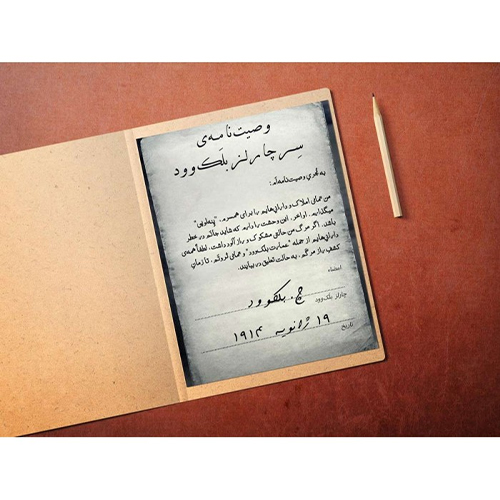 وصیت‌نامه‌ی
سِر چارلز بلَک‌وود
به مُجری وصیت‌نامه‌ام:
من تمامی املاک و دارایی‌هایم را برای همسرم، "پنه‌لوپی"
میگذارم. اواخر، این وحشت را دارم که شاید جانم در خطر
باشد. اگر مرگ من حالتی مشکوک و رازآلود داشت، لطفاً همه‌ی
دارایی‌هایم از جمله "عمارت بلک‌وود" و تمامی ثروتم، تا زمانِ
کشفِ رازِ مرگم، به حالت تعلیق در بیایند.
امضاء
چارلز بلک‌وود چ. بلکوود
تاریخ ۱۹ ژانویه ۱۹۱۴